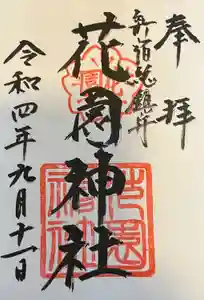 奉拝
新宿総鎮守
花園神社
花園神社
令和四年九月十一日